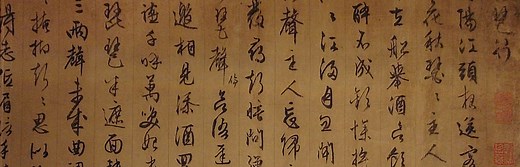 琶行
陽江頭夜送客
花秋瑟〻主人
在船舉酒欲飲
醉不成歡慘將
茫江浸月忽聞
聲主人忘歸
發尋聲暗問彈
琶聲停欲語遲
邀相見添酒回
千呼萬喚始出
琵琶半遮面轉
三兩聲未成曲調
掩抑聲〻思似
得志低眉信手